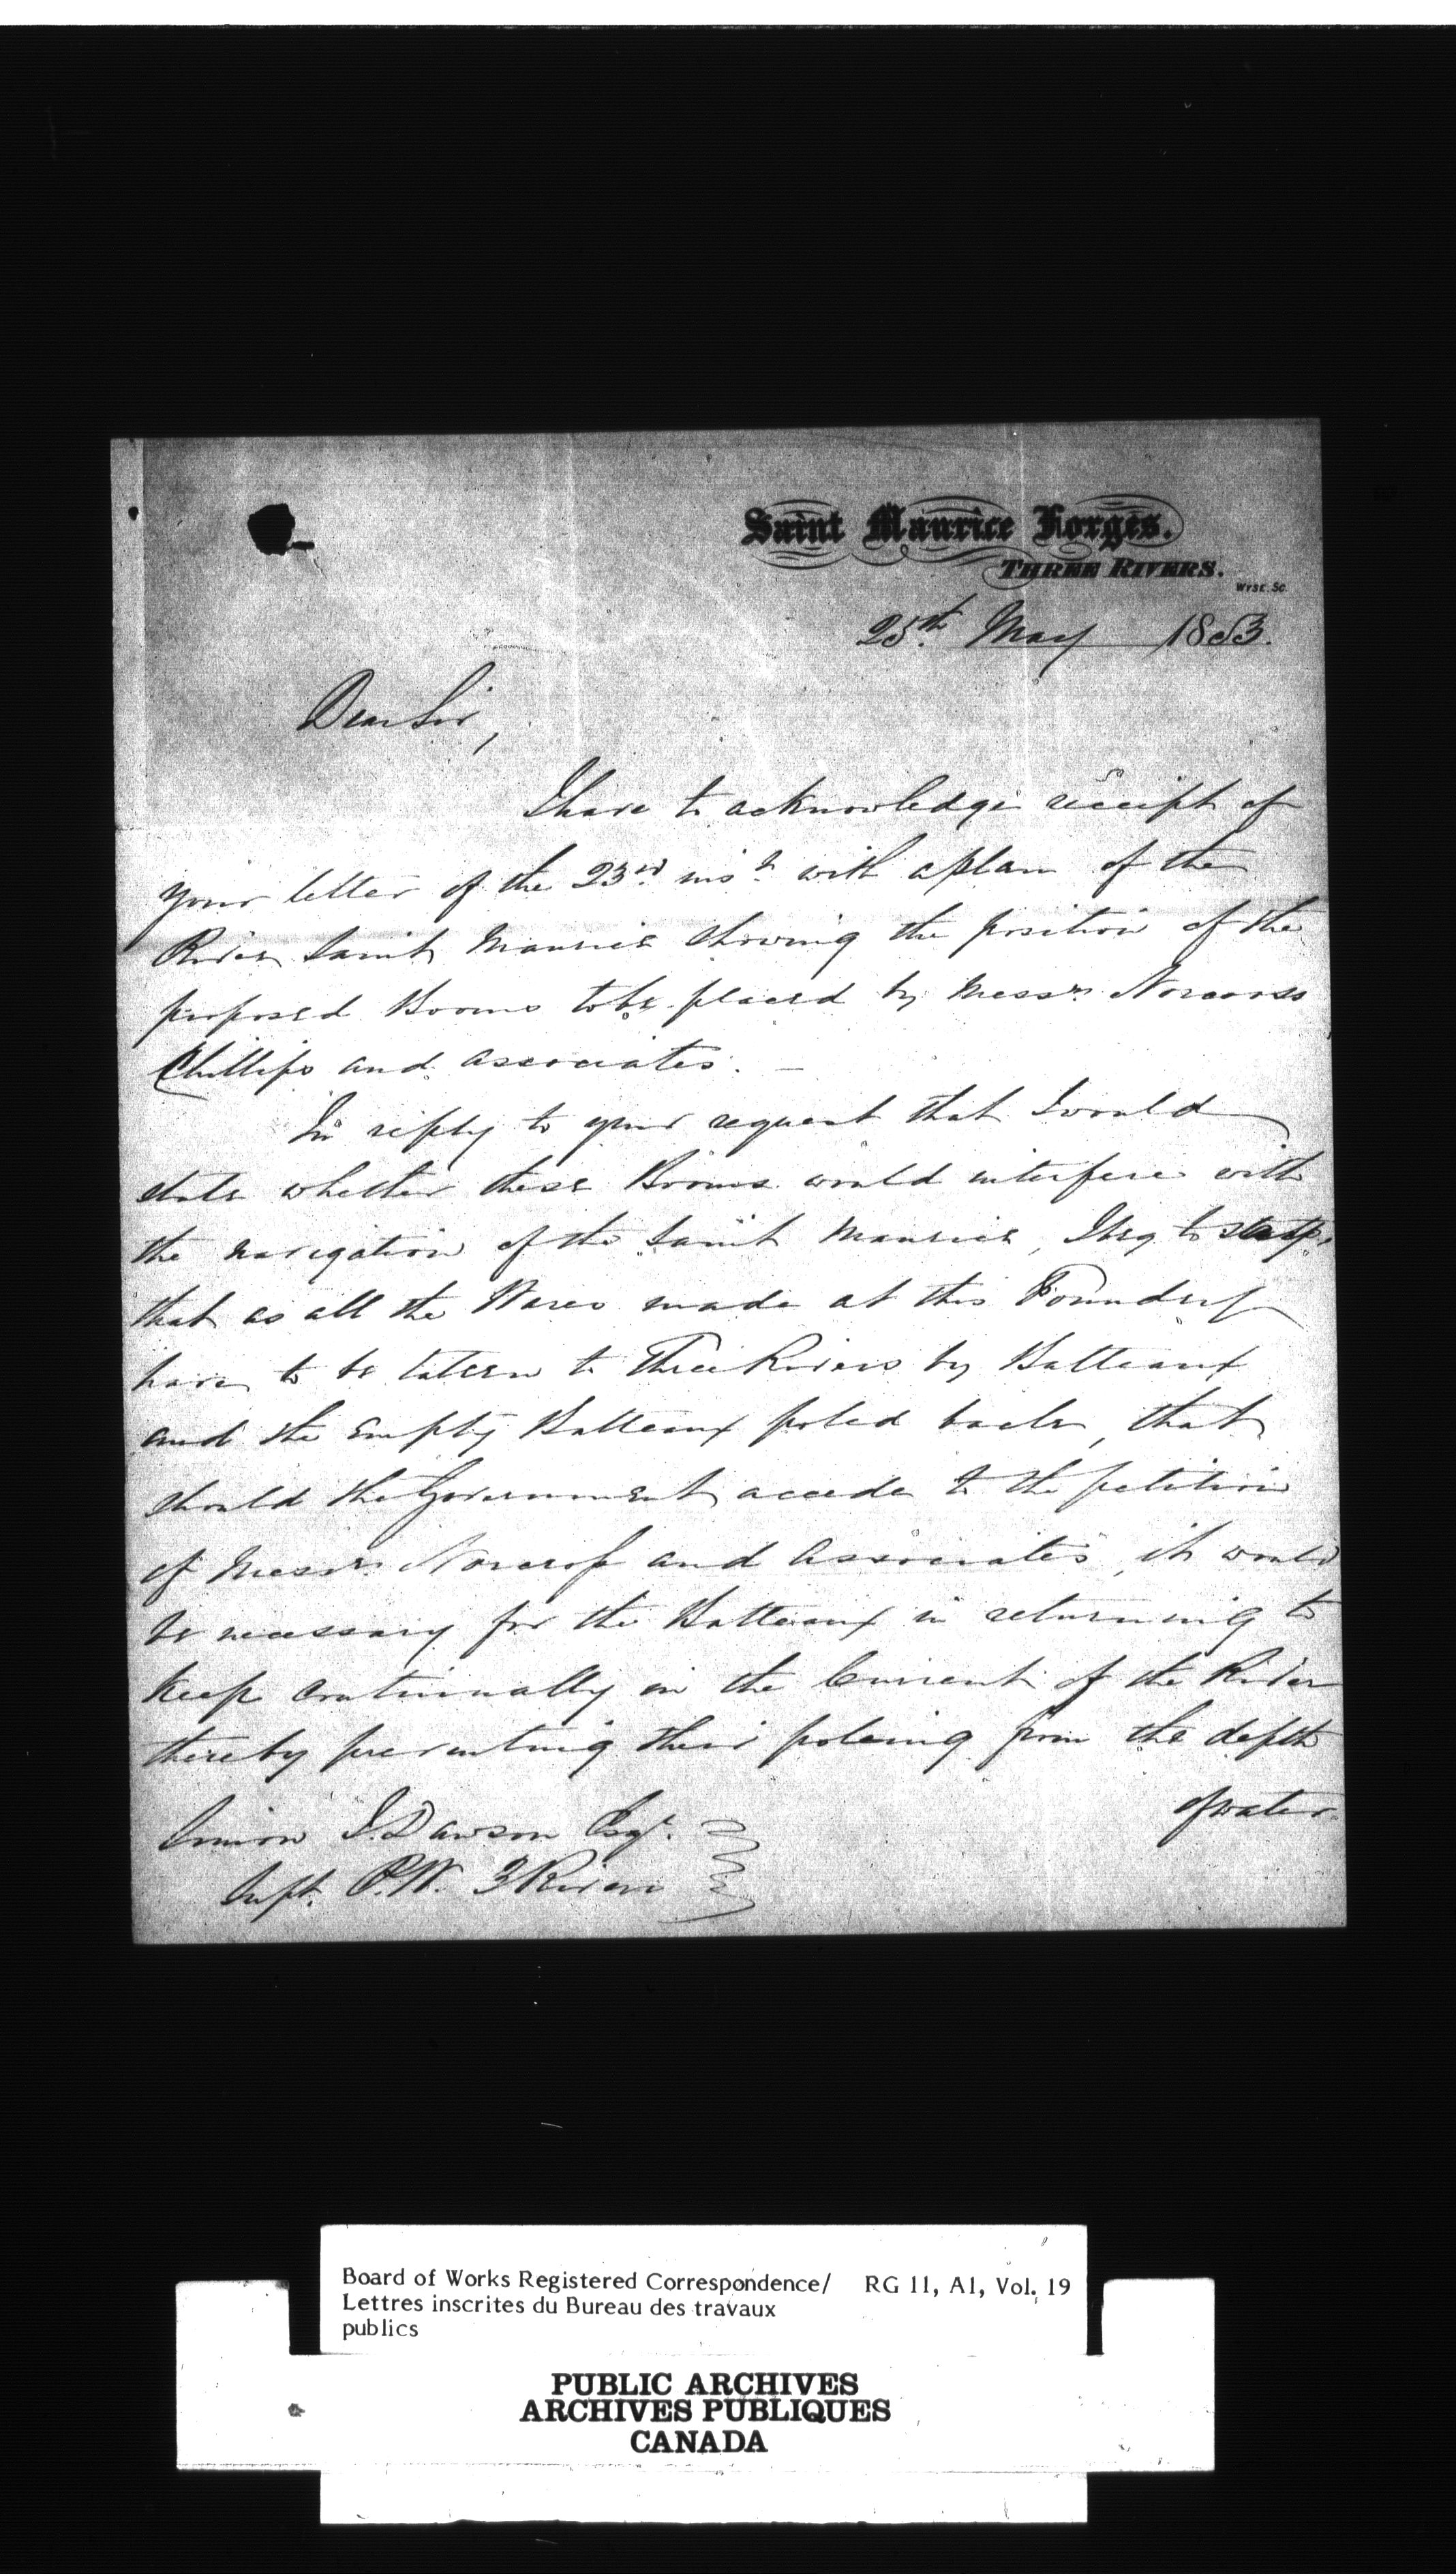 Saint Maurice Forges.
THREE RIVERS.
WYSE. Sc
25th May 1853.
Dear Sir,
I have to acknowledge receipt of
your letter of the 23rd inst with a plan of the
River Saint Maurice showing the position of the
proposed Booms to be placed by Messrs Norcross
Phillips and associates. —
In reply to your request that I would
state whether these Booms would interfere with
the navigation of the Saint Maurice, I beg to state
that as all the Wares made at this Foundery
have to be taken to Three Rivers by Batteaux
and the empty Batteaux poled back, that
should the Government accede to the petition
of Messrs Norcross and Associates, it would
be necessary for the Batteaux in returning to
keep continually in the Current of the River
thereby preventing their poleing from the depth
of water.
Simon J. Dawson Esqr.
Supt. P.W. 3 Rivers
Board of Works Registered Correspondence/ RG 11, A1, Vol. 19
Lettres inscrites du Bureau des travaux
publics
PUBLIC ARCHIVES
ARCHIVES PUBLIQUES
CANADA